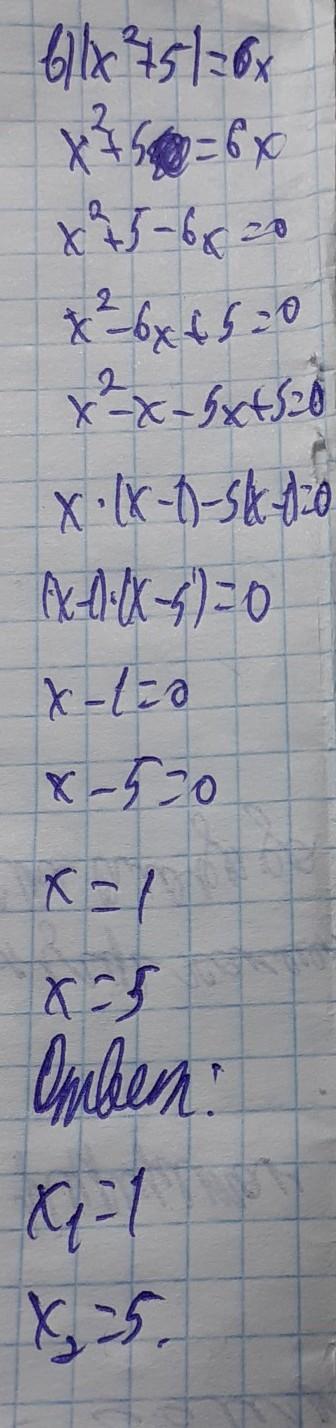 б) |x²+5|=6x
x²+5=6x
x²+5-6x=0
x²-6x+5=0
x²-x-5x+5=0
x·(x-1)-5(x-1)=0
(x-1)·(x-5)=0
x-1=0
x-5=0
x=1
x=5
Ответ:
x₁=1
x₂=5.